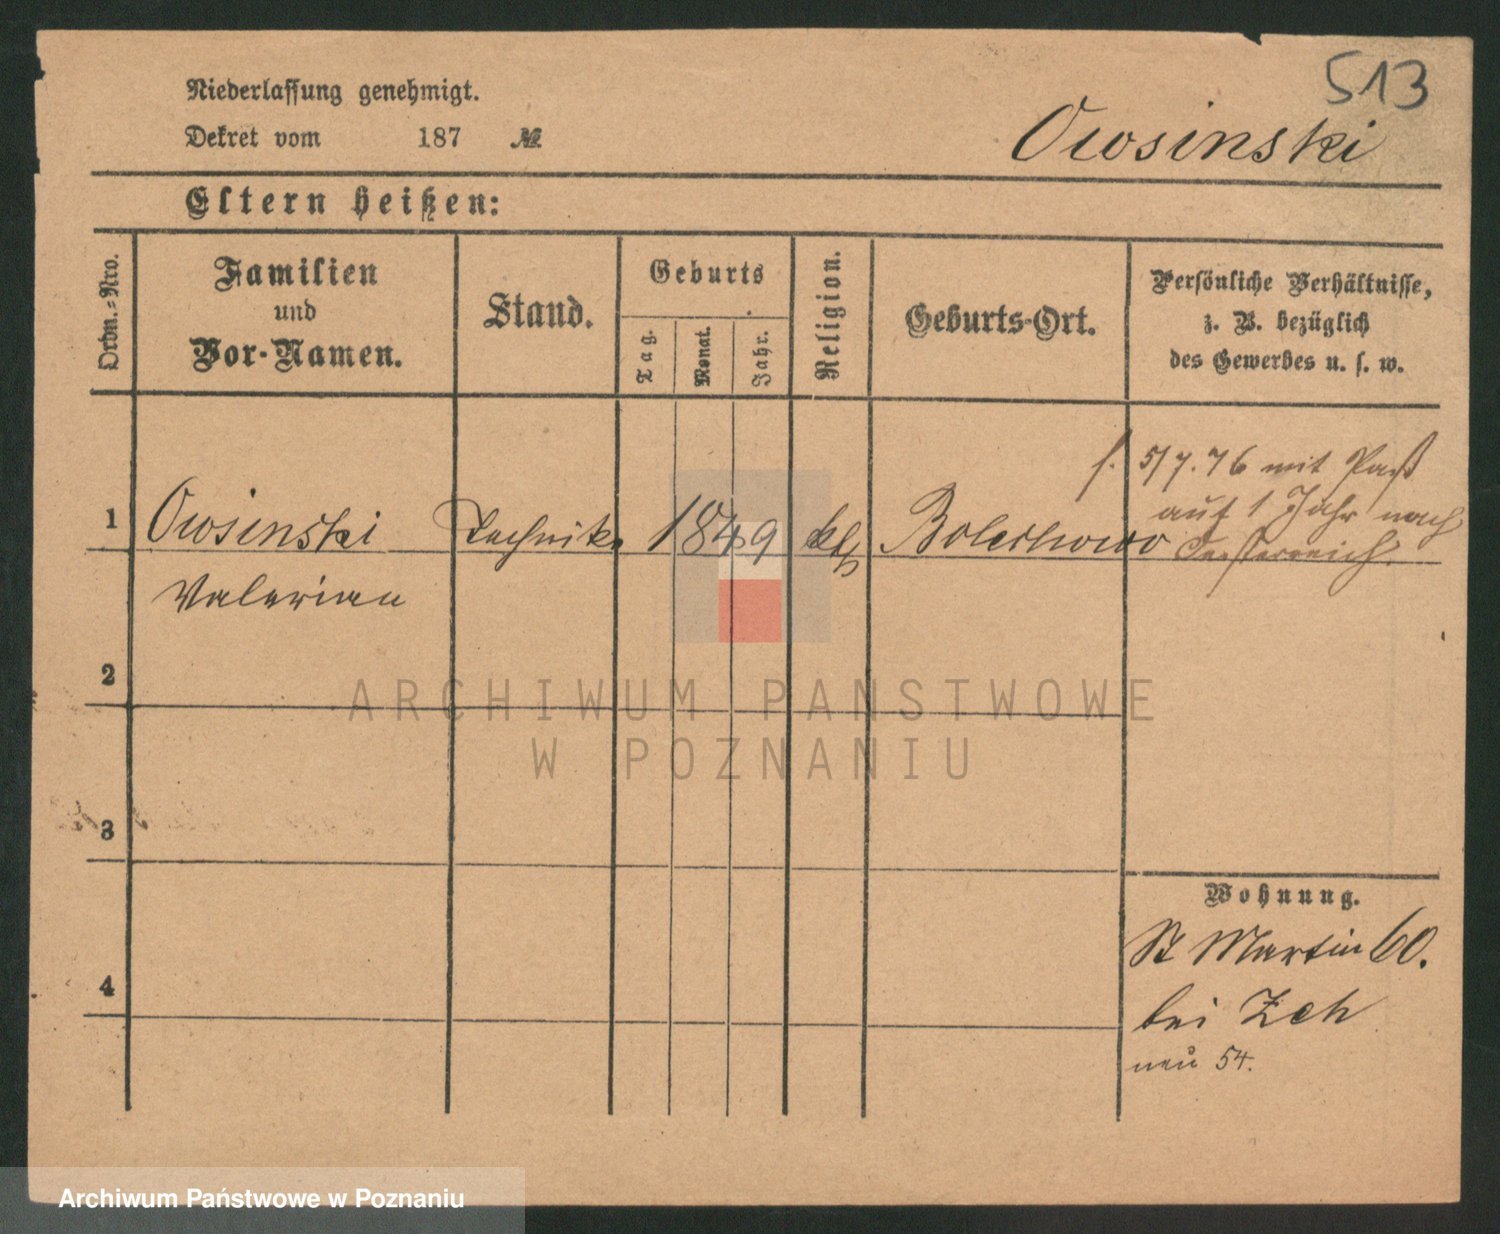 513
Niederlassung genehmigt.
Dekret vom 187 №
Owsinski
Eltern heißen:
Ordn.-Nro.
Familien
und
Vor-Namen.
Stand.
Geburts
Tag.
Monat.
Jahr.
Religion.
Geburts-Ort.
Persönliche Verhältnisse,
z. B. bezüglich
des Gewerbes u. s. w.
1 Owsinski Technik. 1849 kth
Valerian
f. 5/7.76 mit Paß
auf 1 Jahr nach
Oesterreich.
2
3
4
Wohnung.
St Martin 60.
bei Zeh
neu 54.
ARCHIWUM PAŃSTWOWE
W POZNANIU
Archiwum Państwowe w Poznaniu